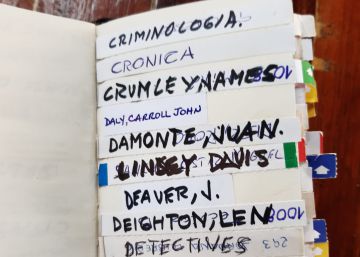 CRIMINOLOGIA.
CRONICA
CRUMLEY JAMES
DALY, CARROLL JOHN
DAMONTE, JUAN.
LINDSEY DAVIS
DEAVER, J.
DEIGHTON, LEN
DETECTIVES